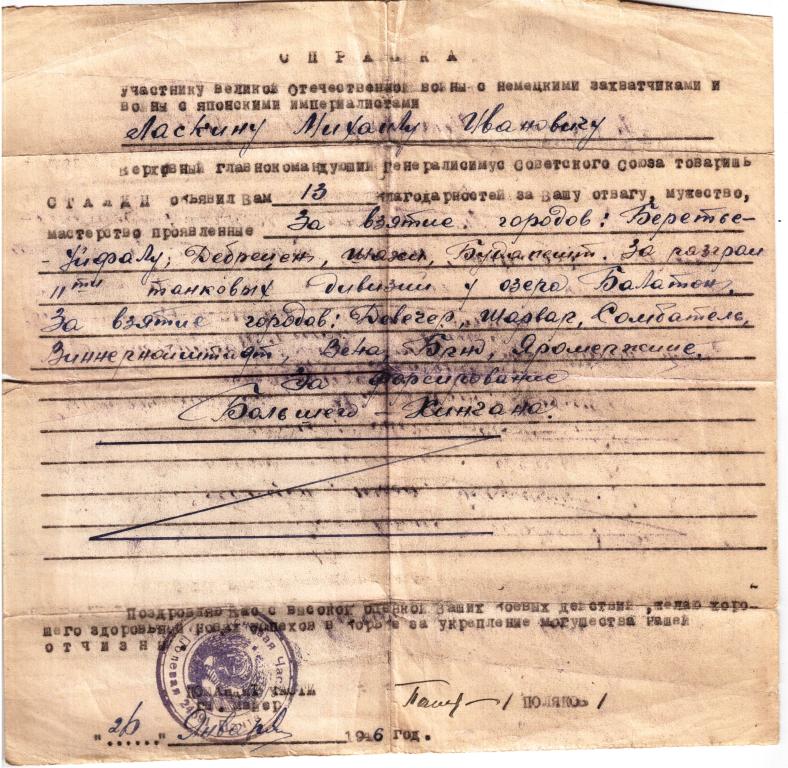 СПРАВКА
участнику Великой Отечественной войны с немецкими захватчиками и
войны с японскими империалистами
Ласкину Михаилу Ивановичу
Верховный главнокомандующий Генералисимус Советского Союза товарищь
СТАЛИН объявил Вам 13 благодарностей за Вашу отвагу, мужество,
мастерство проявленные За взятие городов: Беретье-
- Уйфалу, Дебрецен, Шахи, Будапешт. За разгром
11ти танковых дивизий у озера Балатон.
За взятие городов: Девечер, Шарвар, Сомбатель,
Виннернойштадт, Вена, Брно, Яромержице.
За форсирование
Большего - Хингана.
Поздровляю Вас с высокой оценкой Ваших боевых действий, желаю хоро-
шего здоровья и новых успехов в борьбе за укрепление могущества нашей
ОТЧИЗНЫ.
Полевая Часть
КОМАНДИР ЧАСТИ
гв. майор
/ ПОЛЯКОВ /
"26" Января 1946 год.